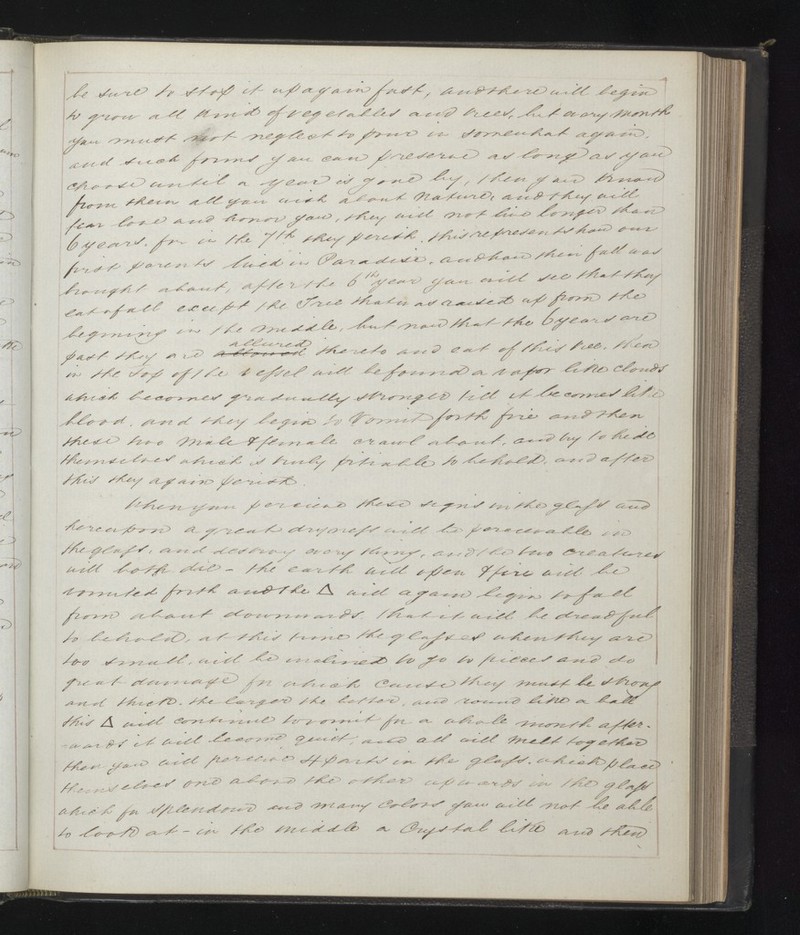 be sure to stop it up again fast, and there will begin
to grow all kind of vegetables and trees, but every month
you must not neglect to pour in somewhat again,
and such forms you can preserve as long as you
choose until a year is gone by, then you know
from them all you wish about Nature, and they will
fear love and honor you, they will not live longer than
6 years. for in the 7th they perish, this represents how our
first parents lived in Paradise, and how their fall was
brought about, after the 6th year you will see that they
eat of all except the Tree that was raised up from the
begining in the middle, but now that the 6 years are
past they are allured thereto and eat of this tree, then
in the Top of the vessel will be found a vapor like clouds
which becomes gradually stronger till it becomes like
blood, and they begin to vomit forth fire and then
these two Male & female crawl about, and try to hide
themselves which is truly pitiable to behold, and after
this they again perish.
When you perceive these signs in the glass and
hereupon a great dryness will be perceivable in
the glass, and destroy every thing, and the two creatures
will both die - the earth will open & fire will be
vomited forth and the △ will again begin to fall
from above downwards, that it will be dreadful
to behold, at this time the glasses when they are
too small, will be inclined to go to pieces and do
great damage for which cause they must be strong
and thick. the larger the better, and round like a ball
this △ will continue to vomit for a whole month after-
wards it will become quiet, and all will melt together
then you will perceive 4 parts in the glass, which place
themselves one above the other upwards in the glass
which for splendour and many colors you will not be able
to look at - in the middle a Crystal like and then